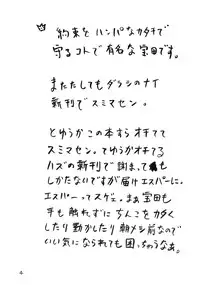 約束をハンパなカタチで
守るコトで有名な宝田です。
またたしてもダラシのナイ
新刊でスミマセン。
とゆうかこの本すらオチてて
スミマセン。てゆうかオチてる
ハズの新刊で詢まっても
しかたないですが届けエスパーに。
エスパーってスゲェ。まあ宝田も
手も触れずにちんこをカタく
したり動かしたり朝メシ前なので
いい気になられても困っちゃうなあ。